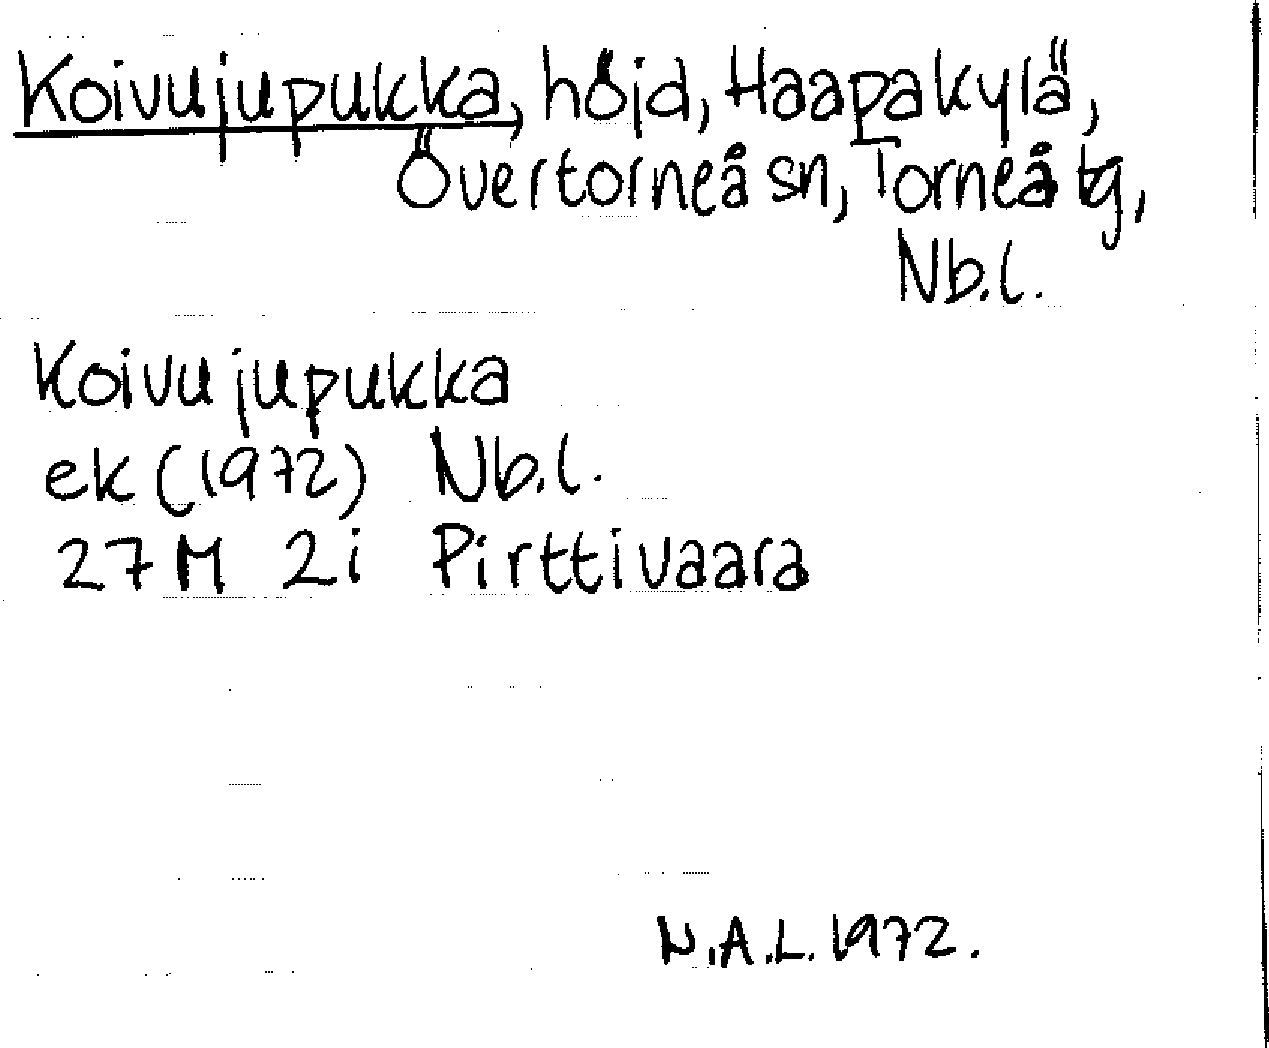 Koivujupukka, höjd, Haapakylä,
Övertorneå sn, Torneå tg,
Nb.l.
Koivujupukka
ek (1972) Nb.l.
27 M 2i Pirttivaara
N.A.L. 1972.